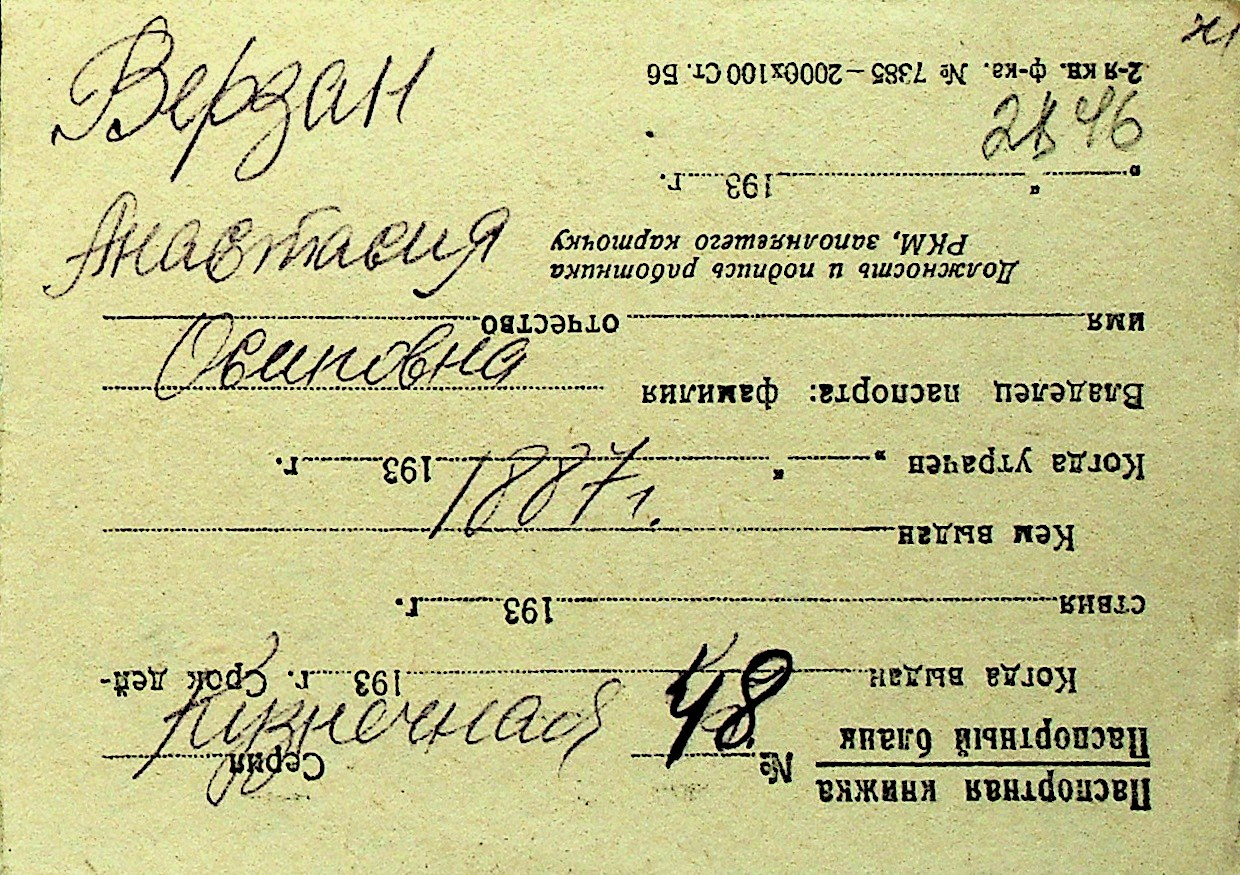 Верзан
Анастасия
Осиповна
1887г.
Кузнечная 48
Паспортная книжка
Паспортный бланк
№ Серия
Когда выдан 193 г. Срок дей-
ствия 193 г.
Кем выдан
Когда утрачен „ “ 193 г.
Владелец паспорта: фамилия
имя отчество
Должность и подпись работника
РКМ, заполнявшего карточку
„ “ 193 г.
2-я кв. ф-ка. № 7385—2000х100 Ст. Б6